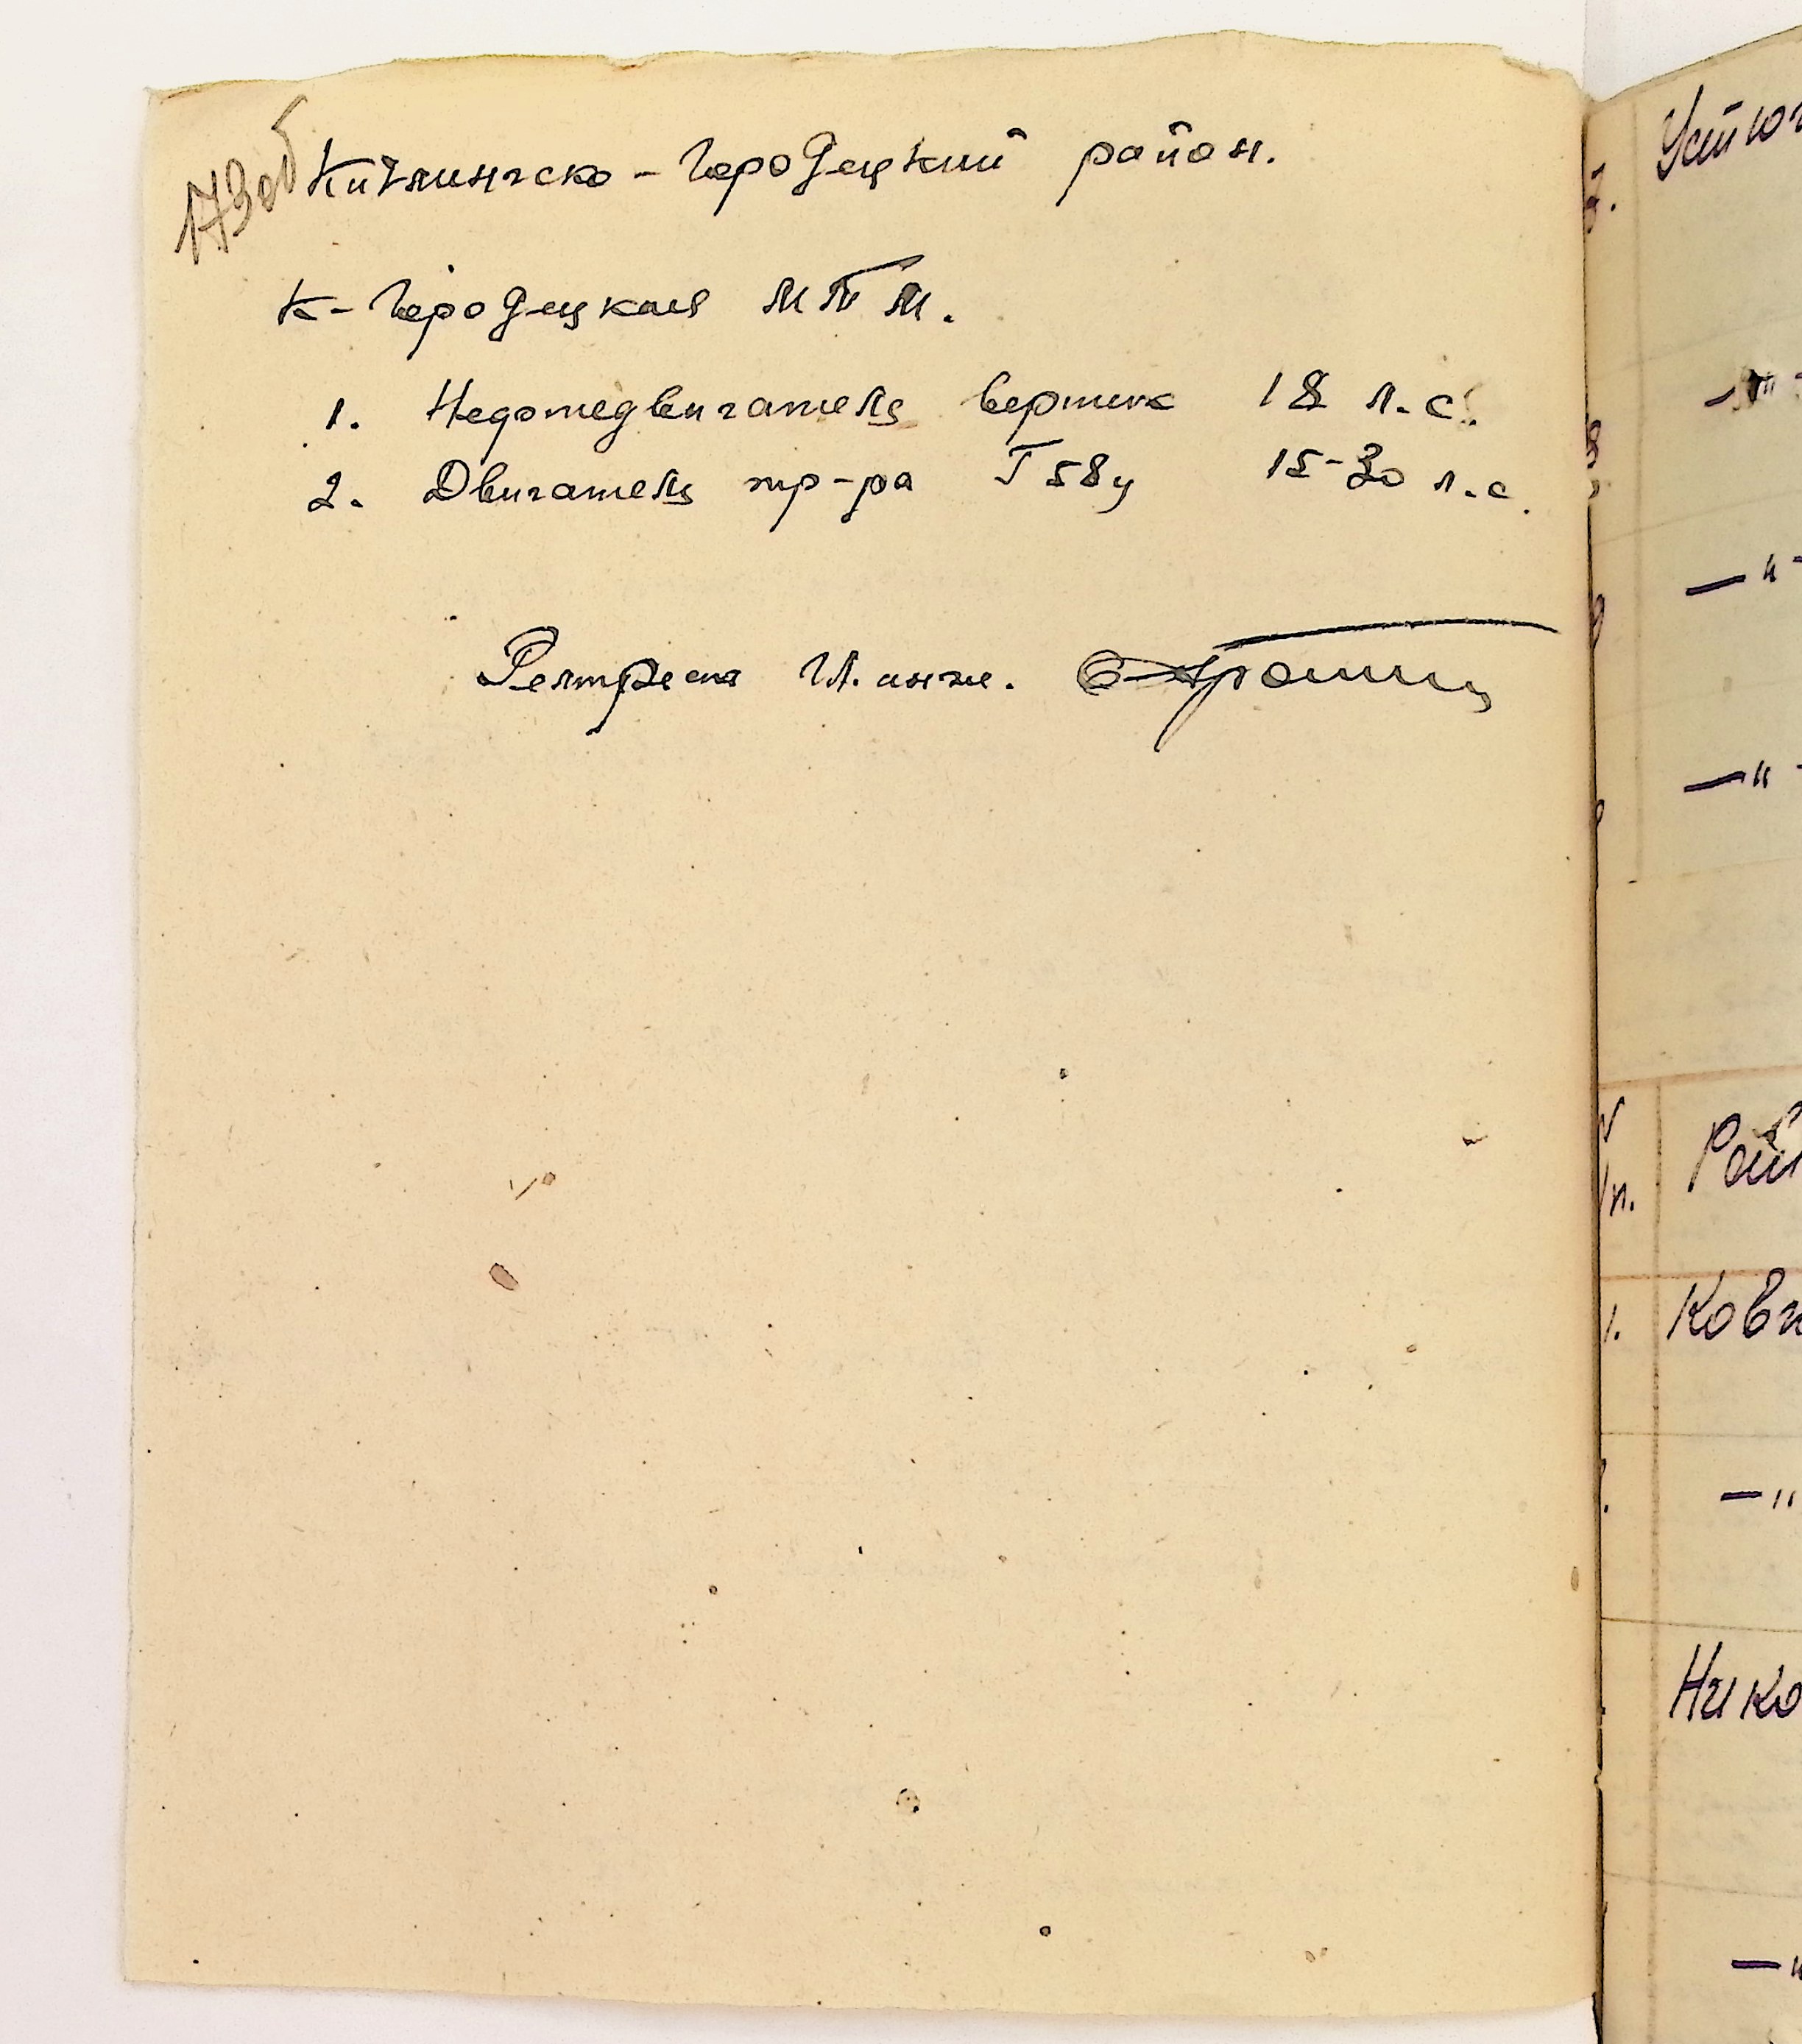 173об
Кичменгско-Городецкий район.
К-Городецкая МТМ.
1. Недотедвигатель вертик 18 л.с.
2. Двигатель тр-ра Г58у 15-30 л.с.
Гл. инж.
Устюг
—"-
—"-
—"-
Рай
п.
1. Ковж
—"
Нико
—"